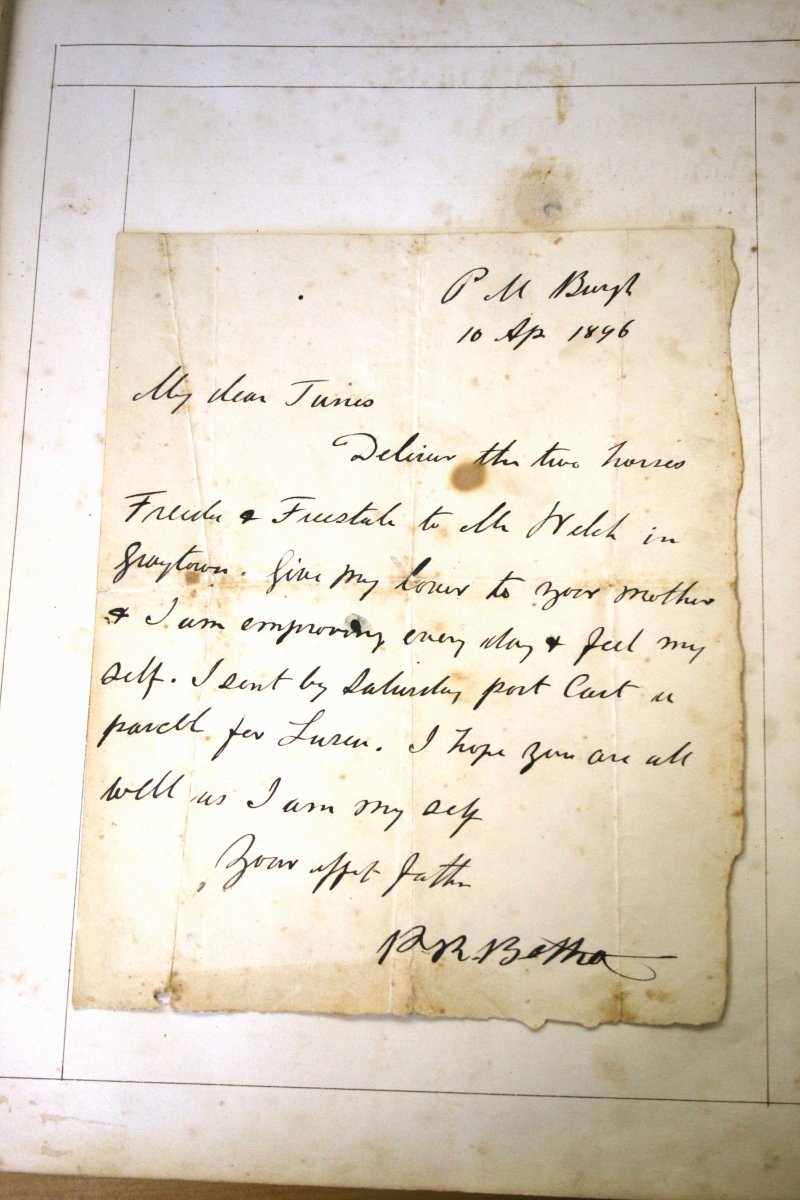 P M Burgh
10 Ap 1896
My dear Tunis
Deliver the two horses
Freida & Freestate to Mr Welch in
Graytown. Give my lover to your mother
& I am emproving every day & feel my
self. I sent by Saturday post Cart a
parcell for
I hope you are all
well as I am my self
Your affct father
P. R. Botha